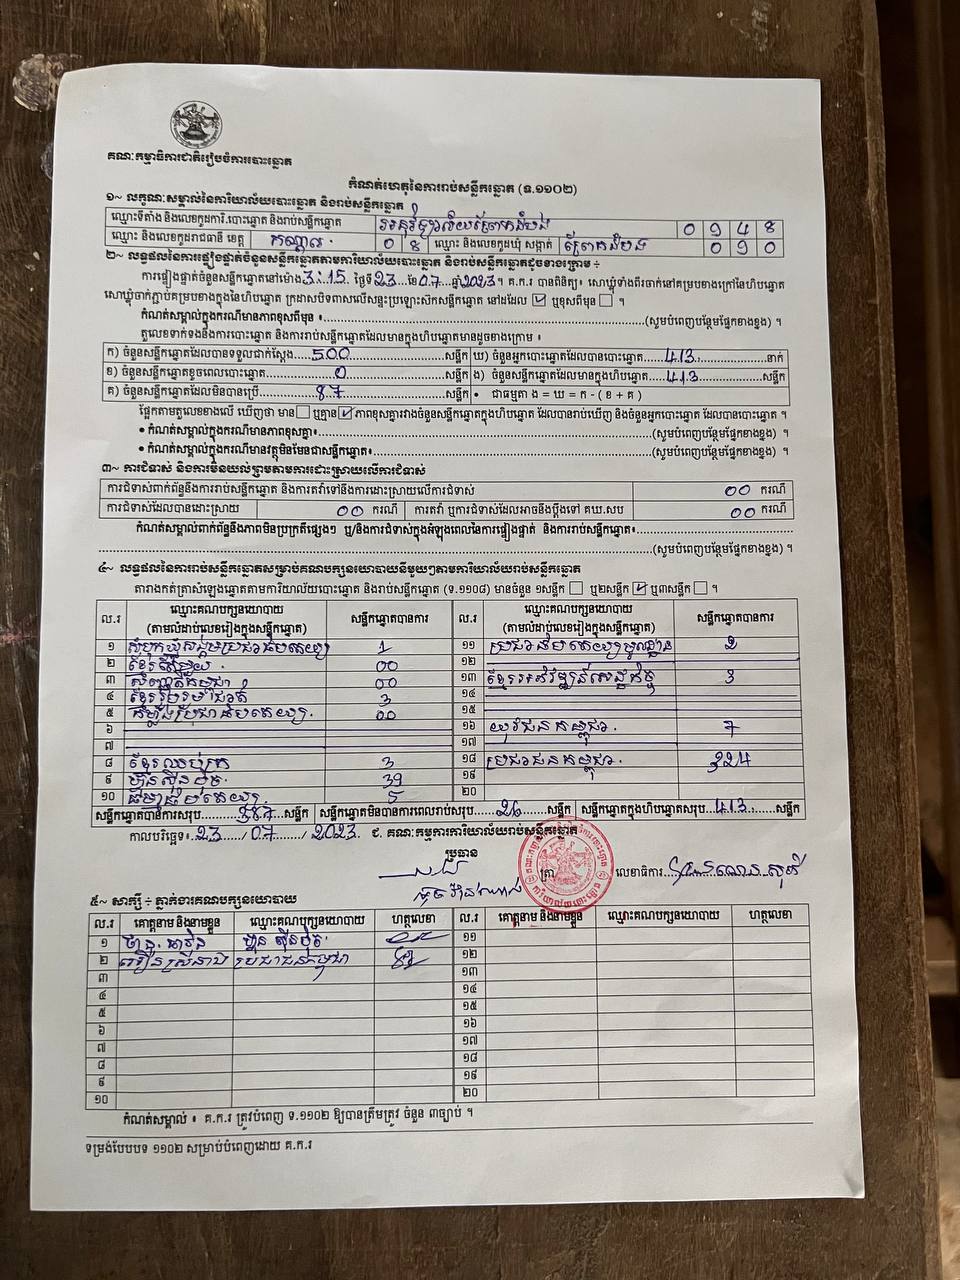 គណៈកម្មាធិការជាតិរៀបចំការបោះឆ្នោត
កំណត់ហេតុនៃការរាប់សន្លឹកឆ្នោត (ទ.១១០២)
១~ លក្ខណៈសម្គាល់នៃការិយាល័យបោះឆ្នោត និងរាប់សន្លឹកឆ្នោត
ឈ្មោះទីតាំង និងលេខកូដការិ.បោះឆ្នោត និងរាប់សន្លឹកឆ្នោត អនុវិទ្យាល័យព្រែកដំបង 0 9 4 8
ឈ្មោះ និងលេខកូដរាជធានី ខេត្ត កណ្តាល 0 8 ឈ្មោះ និងលេខកូដឃុំ សង្កាត់ ព្រែកដំបង 0 9 0
២~ លទ្ធផលនៃការផ្ទៀងផ្ទាត់ចំនួនសន្លឹកឆ្នោតតាមការិយាល័យបោះឆ្នោត និងរាប់សន្លឹកឆ្នោតដូចខាងក្រោម ÷
ការផ្ទៀងផ្ទាត់ចំនួនសន្លឹកឆ្នោតនៅម៉ោង 3:15 ថ្ងៃទី 23 ខែ 07 ឆ្នាំ 2023 ។ គ.ក.រ បានពិនិត្យ៖ សោឃ្លុំទាំងពីរចាក់នៅគម្របខាងក្រៅនៃហិបឆ្នោត
សោឃ្លុំចាក់ភ្ជាប់គម្របខាងក្នុងនៃហិបឆ្នោត ក្រដាសបិទពាសលើសន្ទះប្រឡោះសិកសន្លឹកឆ្នោត នៅដដែល ☑ ឬខុសពីមុន ☐ ។
កំណត់សម្គាល់ក្នុងករណីមានភាពខុសពីមុន ៖ (សូមបំពេញបន្ថែមផ្នែកខាងខ្នង) ។
តួលេខទាក់ទងនឹងការបោះឆ្នោត និងការរាប់សន្លឹកឆ្នោតដែលមានក្នុងហិបឆ្នោតមានដូចខាងក្រោម ៖
ក) ចំនួនសន្លឹកឆ្នោតដែលបានទទួលជាក់ស្តែង 500 សន្លឹក ឃ) ចំនួនអ្នកបោះឆ្នោតដែលបានបោះឆ្នោត 413 នាក់
ខ) ចំនួនសន្លឹកឆ្នោតខូចពេលបោះឆ្នោត 0 សន្លឹក ង) ចំនួនសន្លឹកឆ្នោតដែលមានក្នុងហិបឆ្នោត 413 សន្លឹក
គ) ចំនួនសន្លឹកឆ្នោតដែលមិនបានប្រើ 87 សន្លឹក • ជាធម្មតា ង = ឃ = ក - ( ខ + គ )
ផ្អែកតាមតួលេខខាងលើ ឃើញថា មាន ☐ ឬគ្មាន ☑ ភាពខុសគ្នារវាងចំនួនសន្លឹកឆ្នោតក្នុងហិបឆ្នោត ដែលបានរាប់ឃើញ និងចំនួនអ្នកបោះឆ្នោត ដែលបានបោះឆ្នោត ។
• កំណត់សម្គាល់ក្នុងករណីមានភាពខុសគ្នា៖ (សូមបំពេញបន្ថែមផ្នែកខាងខ្នង) ។
• កំណត់សម្គាល់ក្នុងករណីមានវត្ថុមិនមែនជាសន្លឹកឆ្នោត៖ (សូមបំពេញបន្ថែមផ្នែកខាងខ្នង) ។
៣~ ការជំទាស់ និងការមិនយល់ព្រមតាមការដោះស្រាយលើការជំទាស់
ការជំទាស់ពាក់ព័ន្ធនឹងការរាប់សន្លឹកឆ្នោត និងការតវ៉ាទៅនឹងការដោះស្រាយលើការជំទាស់ 00 ករណី
ការជំទាស់ដែលបានដោះស្រាយ 00 ករណី ការតវ៉ា ឬការជំទាស់ដែលអាចនឹងប្តឹងទៅ គឃ.សប 00 ករណី
កំណត់សម្គាល់ពាក់ព័ន្ធនឹងភាពមិនប្រក្រតីផ្សេងៗ ឬ/និងការជំទាស់ក្នុងអំឡុងពេលនៃការផ្ទៀងផ្ទាត់ និងការរាប់សន្លឹកឆ្នោត៖
(សូមបំពេញបន្ថែមផ្នែកខាងខ្នង) ។
៤~ លទ្ធផលនៃការរាប់សន្លឹកឆ្នោតសម្រាប់គណបក្សនយោបាយនីមួយៗតាមការិយាល័យរាប់សន្លឹកឆ្នោត
តារាងកត់ត្រាសំឡេងឆ្នោតតាមការិយាល័យបោះឆ្នោត និងរាប់សន្លឹកឆ្នោត (ទ.១១០៨) មានចំនួន ១សន្លឹក ☐ ឬ២សន្លឹក ☑ ឬ៣សន្លឹក ☐ ។
ល.រ ឈ្មោះគណបក្សនយោបាយ (តាមលំដាប់លេខរៀងក្នុងសន្លឹកឆ្នោត) សន្លឹកឆ្នោតបានការ ល.រ ឈ្មោះគណបក្សនយោបាយ (តាមលំដាប់លេខរៀងក្នុងសន្លឹកឆ្នោត) សន្លឹកឆ្នោតបានការ
១ សំបុកឃ្មុំសង្គមប្រជាធិបតេយ្យ 1 ១១ ប្រជាធិបតេយ្យមូលដ្ឋាន 2
២ ខ្មែរតែមួយ 00 ១២
៣ សញ្ជាតិកម្ពុជា 00 ១៣ ខ្មែរអភិវឌ្ឍន៍សេដ្ឋកិច្ច 3
៤ ខ្មែររួបរួមជាតិ 3 ១៤
៥ កម្លាំងប្រជាធិបតេយ្យ 00 ១៥
៦ ១៦ យុវជនកម្ពុជា 7
៧ ១៧
៨ ខ្មែរឈប់ក្រ 3 ១៨ ប្រជាជនកម្ពុជា 324
៩ ហ៊្វុនស៊ិនប៉ិច 39 ១៩
១០ ធម្មាធិបតេយ្យ 5 ២០
សន្លឹកឆ្នោតបានការសរុប 387 សន្លឹក សន្លឹកឆ្នោតមិនបានការពេលរាប់សរុប 26 សន្លឹក សន្លឹកឆ្នោតក្នុងហិបឆ្នោតសរុប 413 សន្លឹក
កាលបរិច្ឆេទ៖ 23 / 07 / 2023 ជ. គណៈកម្មការការិយាល័យរាប់សន្លឹកឆ្នោត
ប្រធាន
ត្រា លេខាធិការ
៥~ សាក្សី ÷ ភ្នាក់ងារគណបក្សនយោបាយ
ល.រ គោត្តនាម និងនាមខ្លួន ឈ្មោះគណបក្សនយោបាយ ហត្ថលេខា ល.រ គោត្តនាម និងនាមខ្លួន ឈ្មោះគណបក្សនយោបាយ ហត្ថលេខា
១ ហ៊្វុន ស៊ិនប៉ិច ១១
២ ប្រជាជនកម្ពុជា ១២
៣ ១៣
៤ ១៤
៥ ១៥
៦ ១៦
៧ ១៧
៨ ១៨
៩ ១៩
១០ ២០
កំណត់សម្គាល់ ៖ គ.ក.រ ត្រូវបំពេញ ទ.១១០២ ឱ្យបានត្រឹមត្រូវ ចំនួន ៣ច្បាប់ ។
ទម្រង់បែបបទ ១១០២ សម្រាប់បំពេញដោយ គ.ក.រ